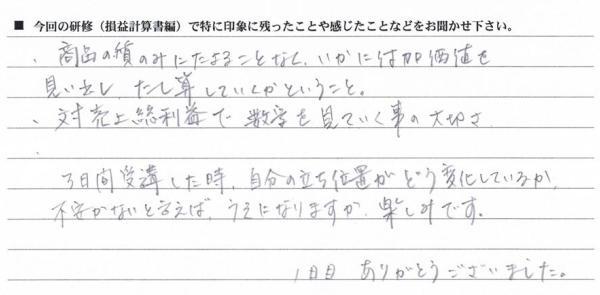 ■ 今回の研修（損益計算書編）で特に印象に残ったことや感じたことなどをお聞かせ下さい。
、商品の質のみにたよることなく、いかに付加価値を
見い出し、たし算していくかということ。
、対売上総利益で数字を見ていく事の大切さ
、
3日間受講した時、自分の立ち位置がどう変化しているか、
不安がないと言えば、うそになりますが、楽しみです。
1日目 ありがとうございました。